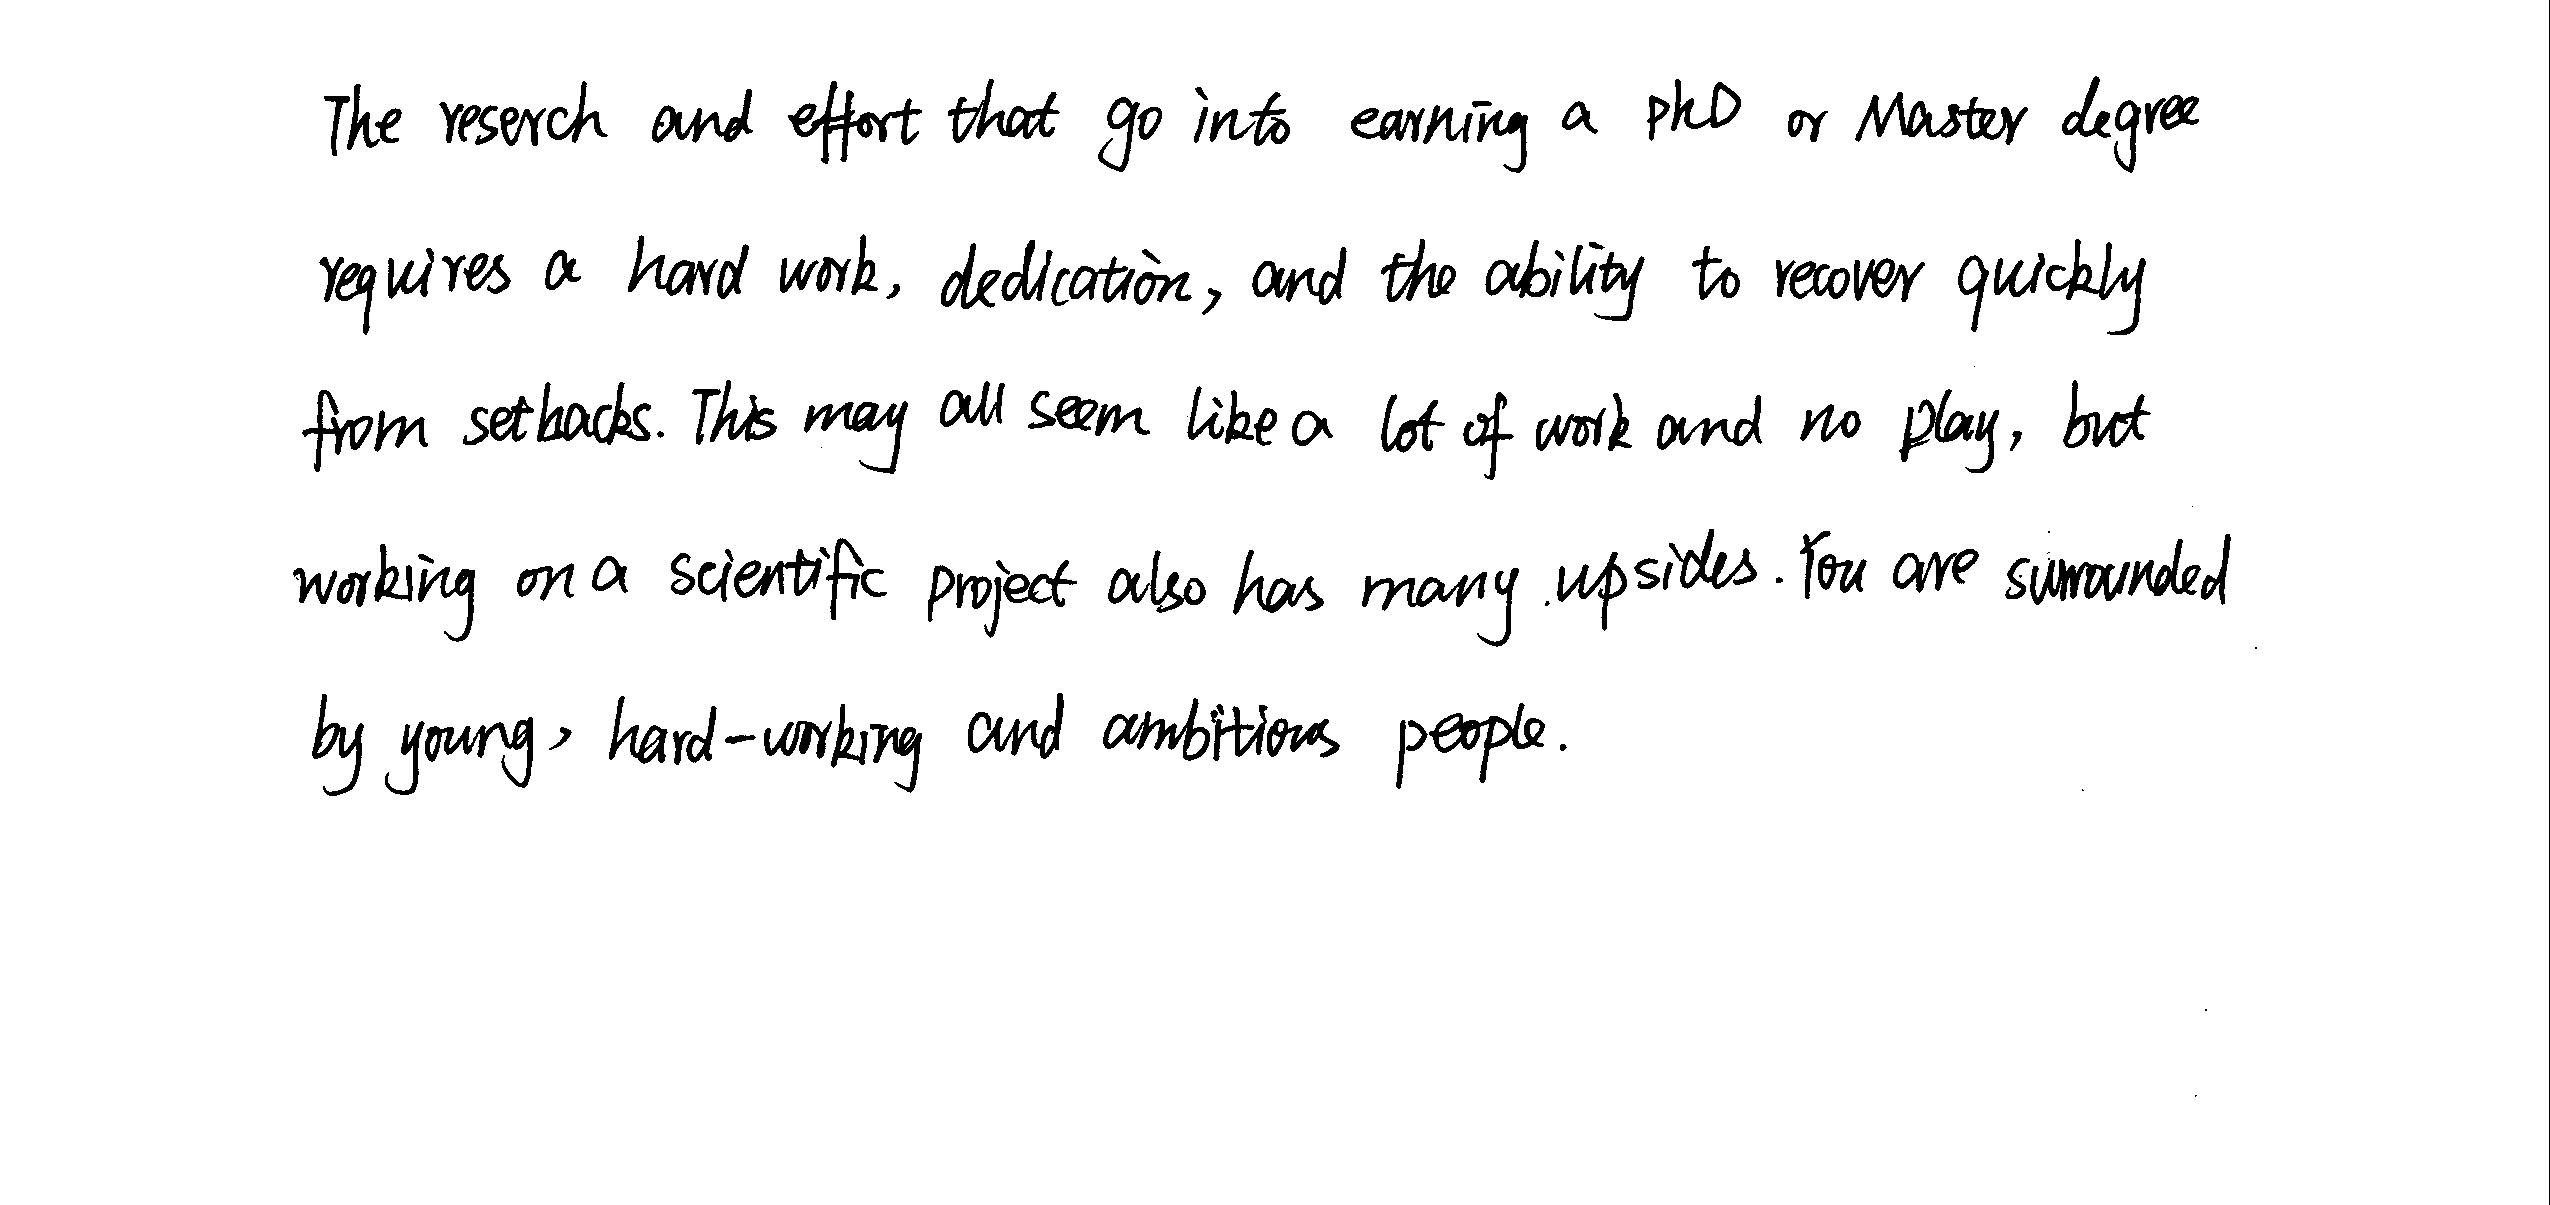 The reserch and effort that go into earning a phD or Master degree
requires a hard work, dedication, and the ability to recover quickly
from setbacks. This may all seem like a lot of work and no play, but
working on a scientific project also has many upsides. You are surrounded
by young, hard-working and ambitious people.